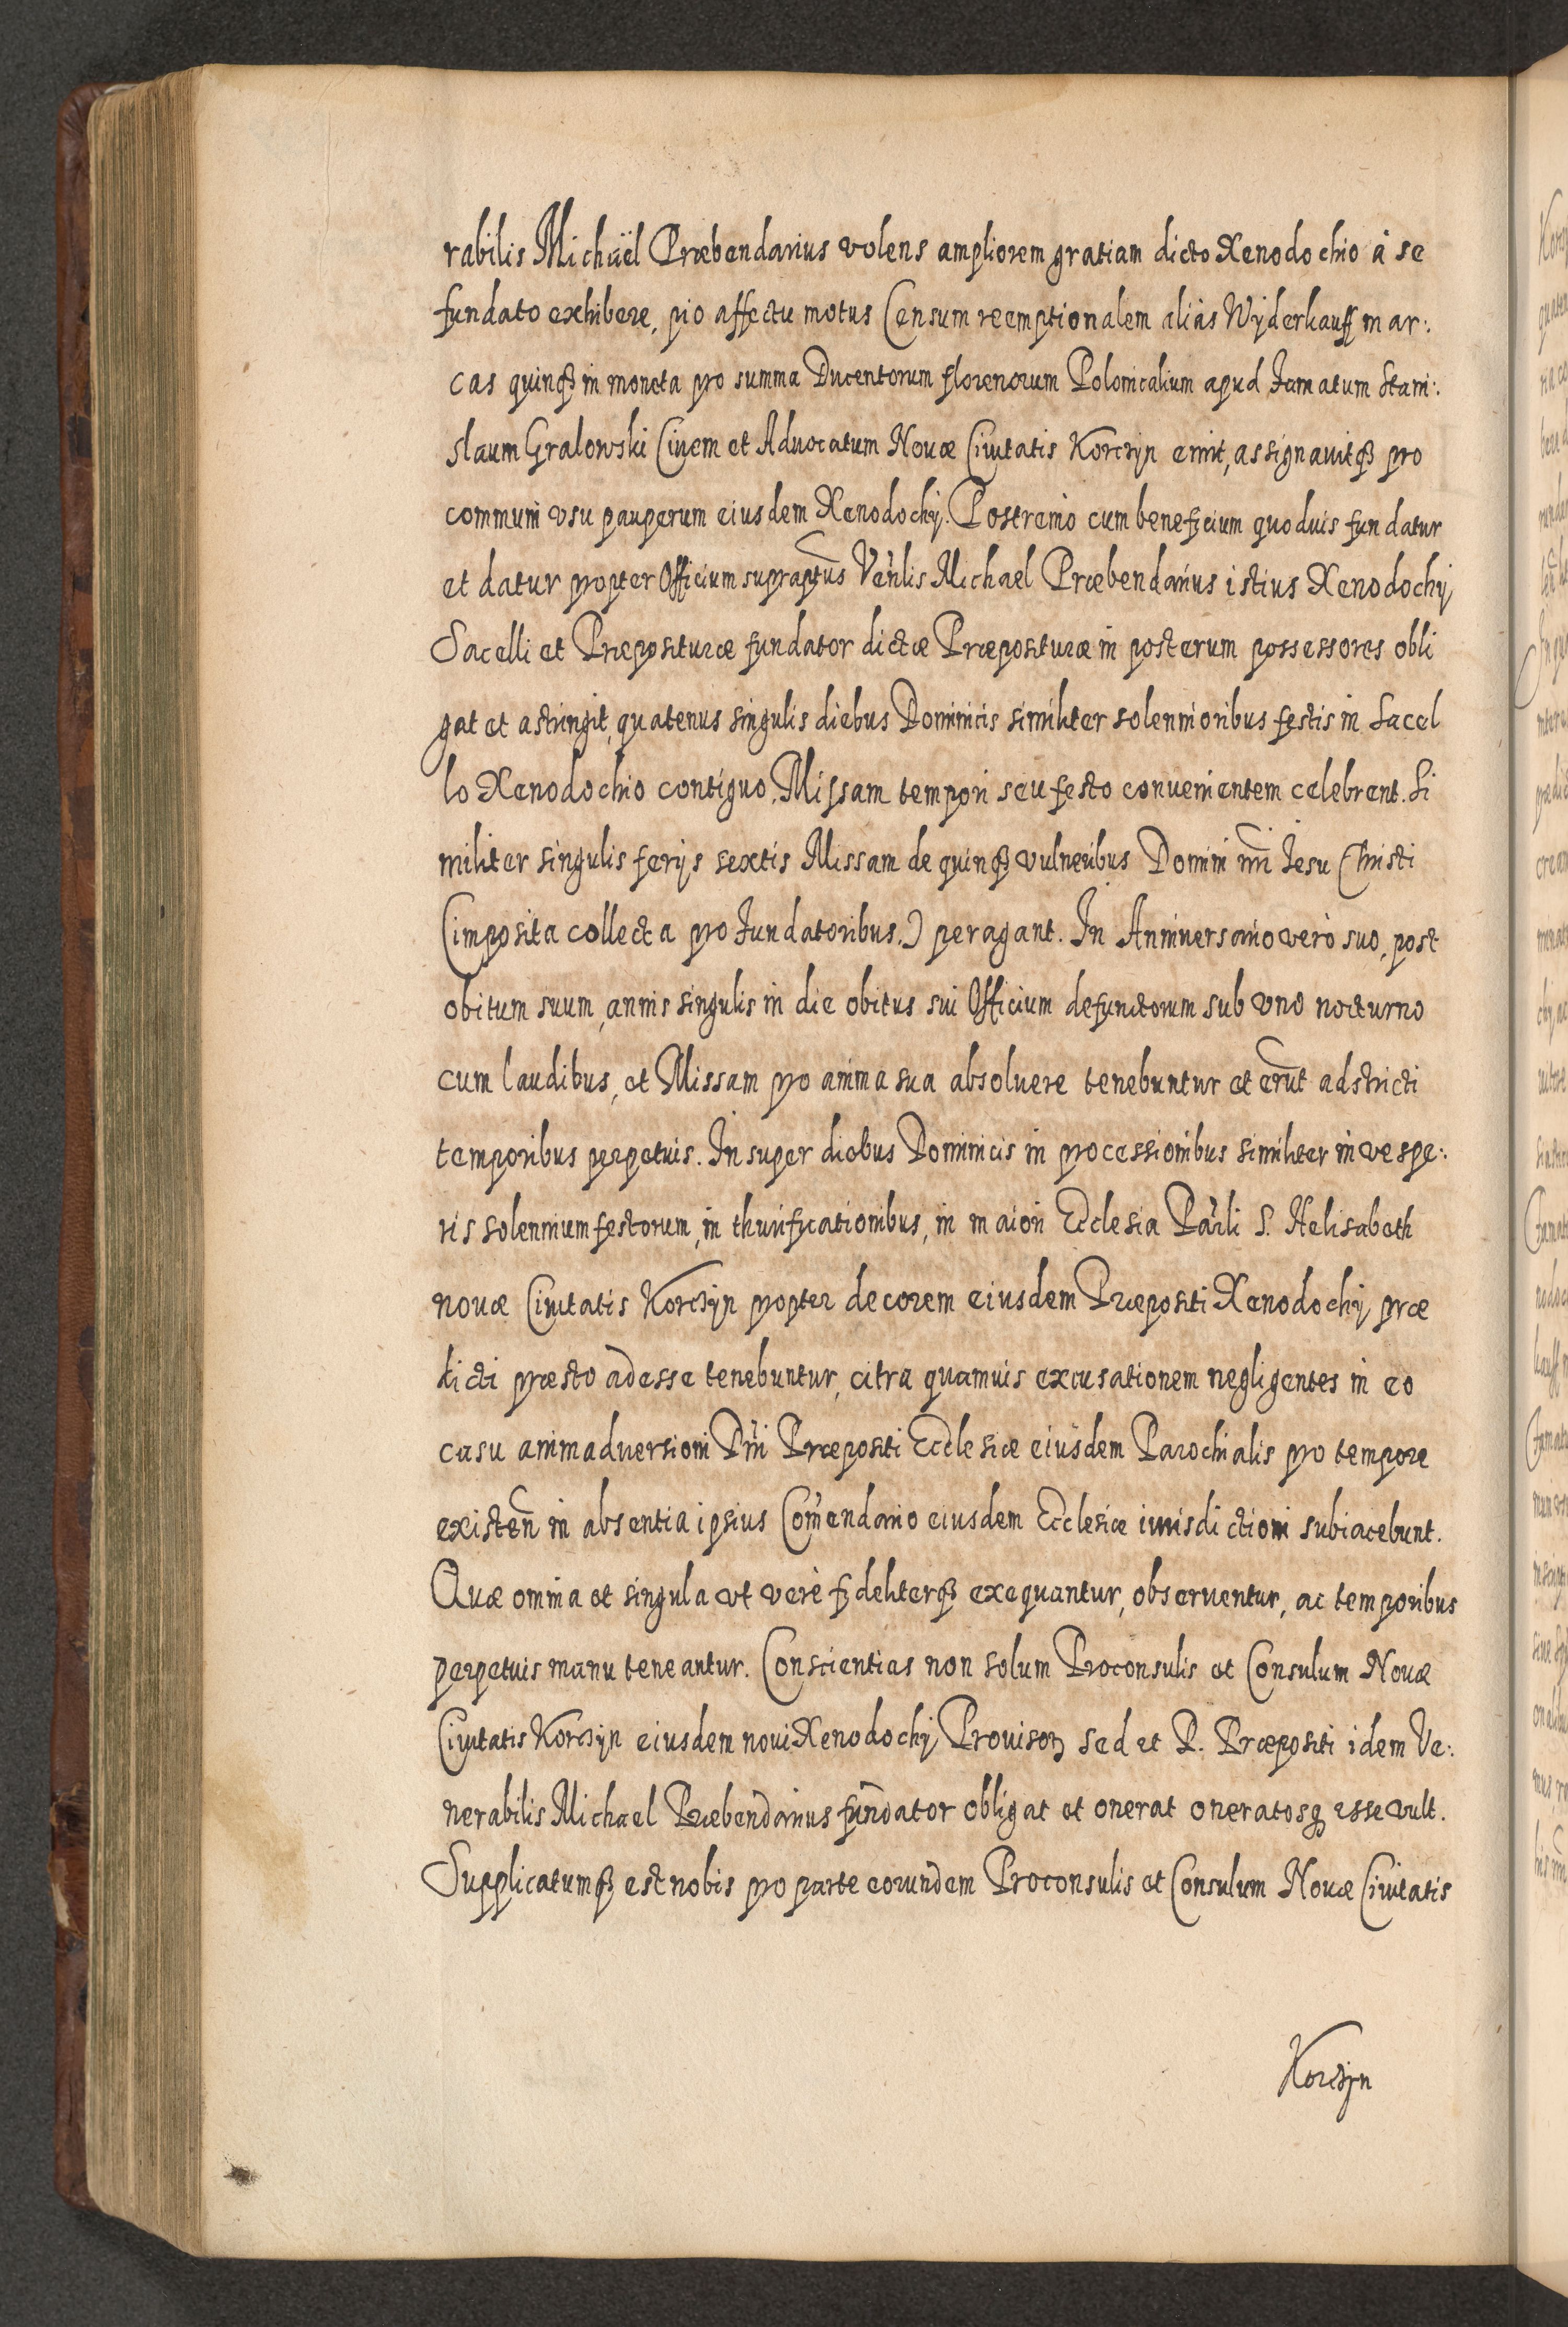 rabilis Michäel Præbendarius volens ampliorem gratiam dicto Xenodochio à se
fundato exhibere, pio affectu motus Censum reemptionalem aliàs Wÿderkauff mar:
cas quinqȝ in moneta pro summa Ducentorum florenorum Polonicalium apud Famatum Stani:
slaum Gralowski Ciuem et Aduocatum Nouæ Ciuitatis Korczÿn emit, assignauitqȝ pro
communi vsu pauperum eiusdem Xenodochÿ. Postremò cum beneficium quoduis fundatur
et datur propter Officium supraptus Venlis Michael Præbendarius istius Xenodochÿ
Sacelli et Præposituræ fundator dictæ Præposituræ in posterum possessores obli
gat et astringit, quatenus singulis diebus Dominicis similiter solennioribus festis in Sacel
lo Xenodochio contiguo, Missam tempori seu festo conuenientem celebrent. Si
militer singulis ferÿs sextis Missam de quinqȝ vulneribus Domini nri Iesu Christi
(imposita collecta pro Fundatoribus.) peragant. In Anniuersario verò suo, post
obitum suum, annis singulis in die obitus sui Officium defunctorum sub vno nocturno
cum laudibus, et Missam pro anima sua absoluere tenebuntur et erūt adstricti
temporibus perpetuis. Insuper diebus Dominicis in processionibus similiter in vespe:
ris solennium festorum, in thurificationibus, in maiori Ecclesia Parli S. Helisabeth
nouæ Ciuitatis Korczÿn propter decorem eiusdem Præpositi Xenodochÿ præ
dicti præsto adesse tenebuntur, citra quamuis excusationem negligentes in eo
casu animaduersioni Dni Præpositi Ecclesiæ eiusdem Parochialis pro tempore
existen̄ in absentia ipsius Com̄endario eiusdem Ecclesiæ iurisdictioni subiacebunt.
Quæ omnia et singula vt verè fideliterqȝ exequantur, obseruentur, ac temporibus
perpetuis manu teneantur. Conscientias non solum Proconsulis et Consulum Nouæ
Ciuitatis Korczÿn eiusdem noui Xenodochÿ Prouisoꝝ sed et P. Præpositi idem Ve:
nerabilis Michael Præbendarius fundator obligat et onerat oneratosqȝ esse vult.
Supplicatumqȝ est nobis pro parte eorundem Proconsulis et Consulum Nouæ Ciuitatis
Korczÿn